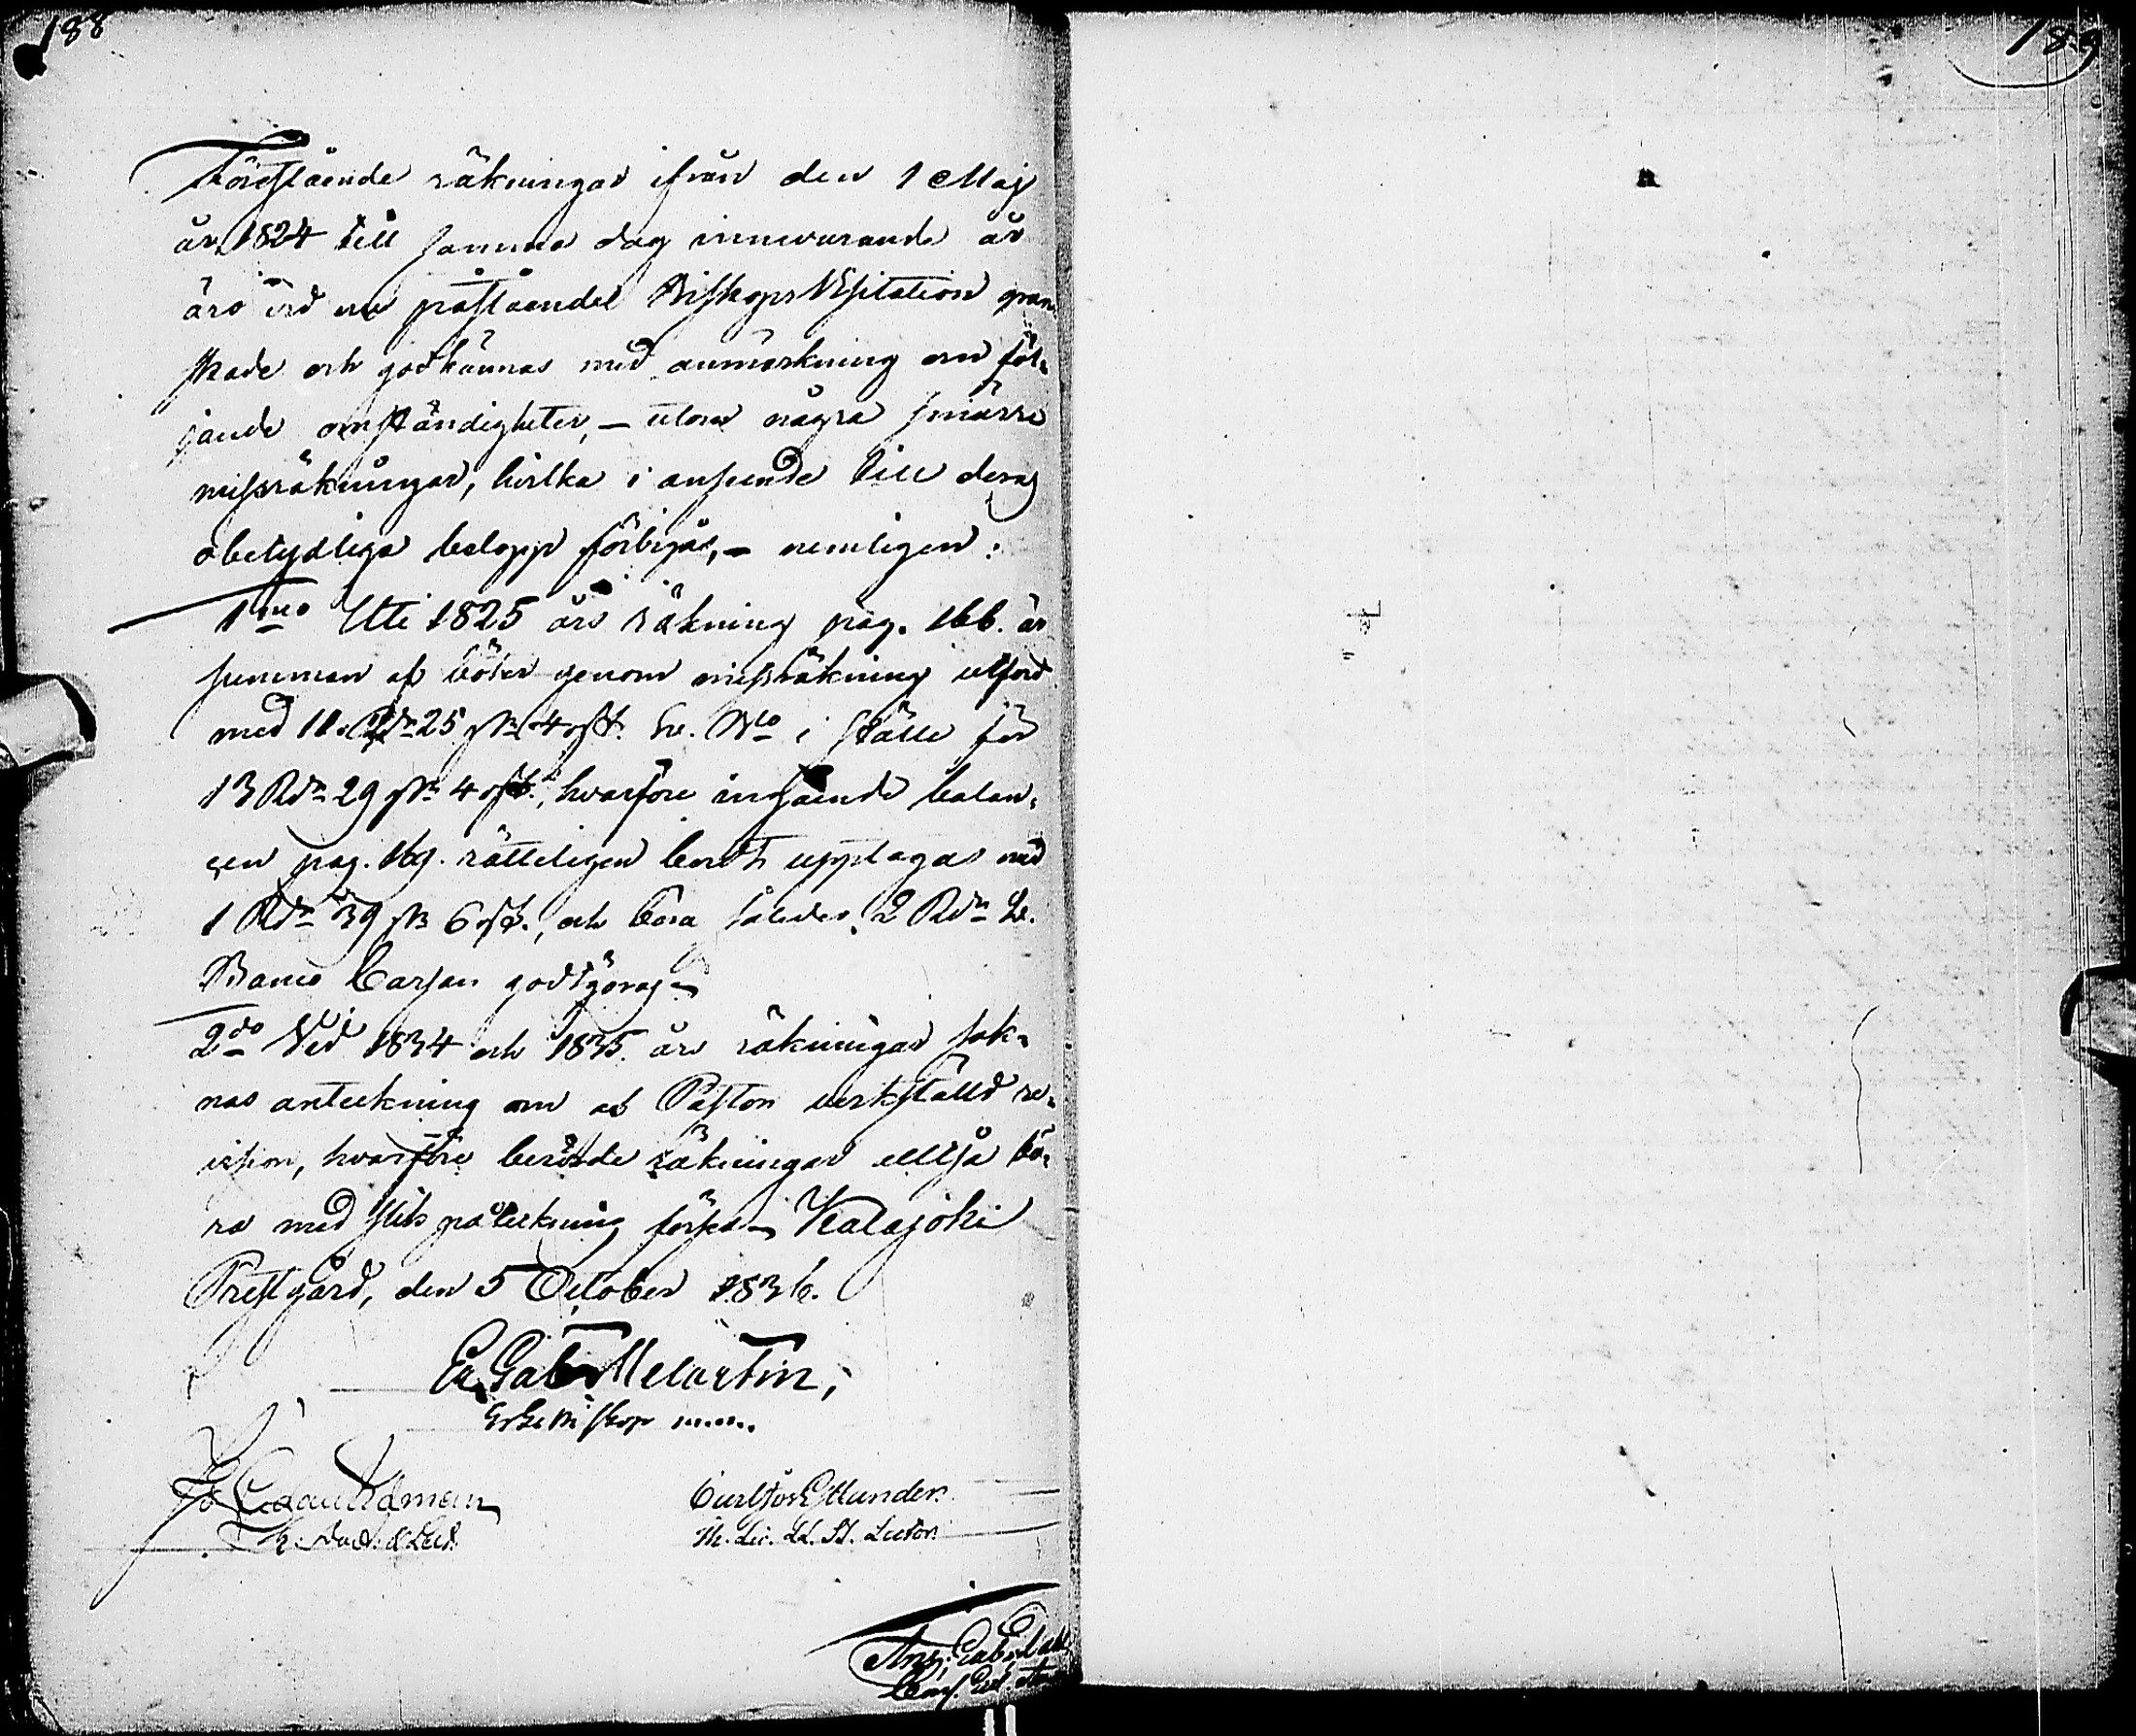 188
189
Föreståénde räkningar ifrån den 1 Maj
år 1824 till samma dag innevarande år
äro vid nu påstående Biskops Visitation gran-
skade och godkännas med anmärkning om föl-
jande omständigheter, – utom några smärre
missräkningar, hvilka i anseende till deras
obetydliga belopp förbigås, – nemligen:
1mo Uti 1825 års räkning pag. 166. är
summan af böter genom missräkning utförd
med 11 Rdr 25 sk. 4 rst. Sv. Bco i ställe för
13 Rdr 29 sk. 4 rst., hvarföre ingående balan-
çen pag. 169. rätteligen bordt upptagas med
1 Rdr 39 sk 6 rst., och böra således 2 Rdr Sv.
Banco Cassan godtgöras –
2do Vid 1834 och 1835 års räkningar sak-
nas anteckning om af Pastor verkställd re-
vision, hvarföre berörde räkningar alltså bö-
ra med slik påteckning förses – Kalajoki
Prestgård, den 5 October 1836.
Er. Gabr. Melartin,
Erkebiskop
Edman
Lect.
M. Lic. Lector
Gabriel